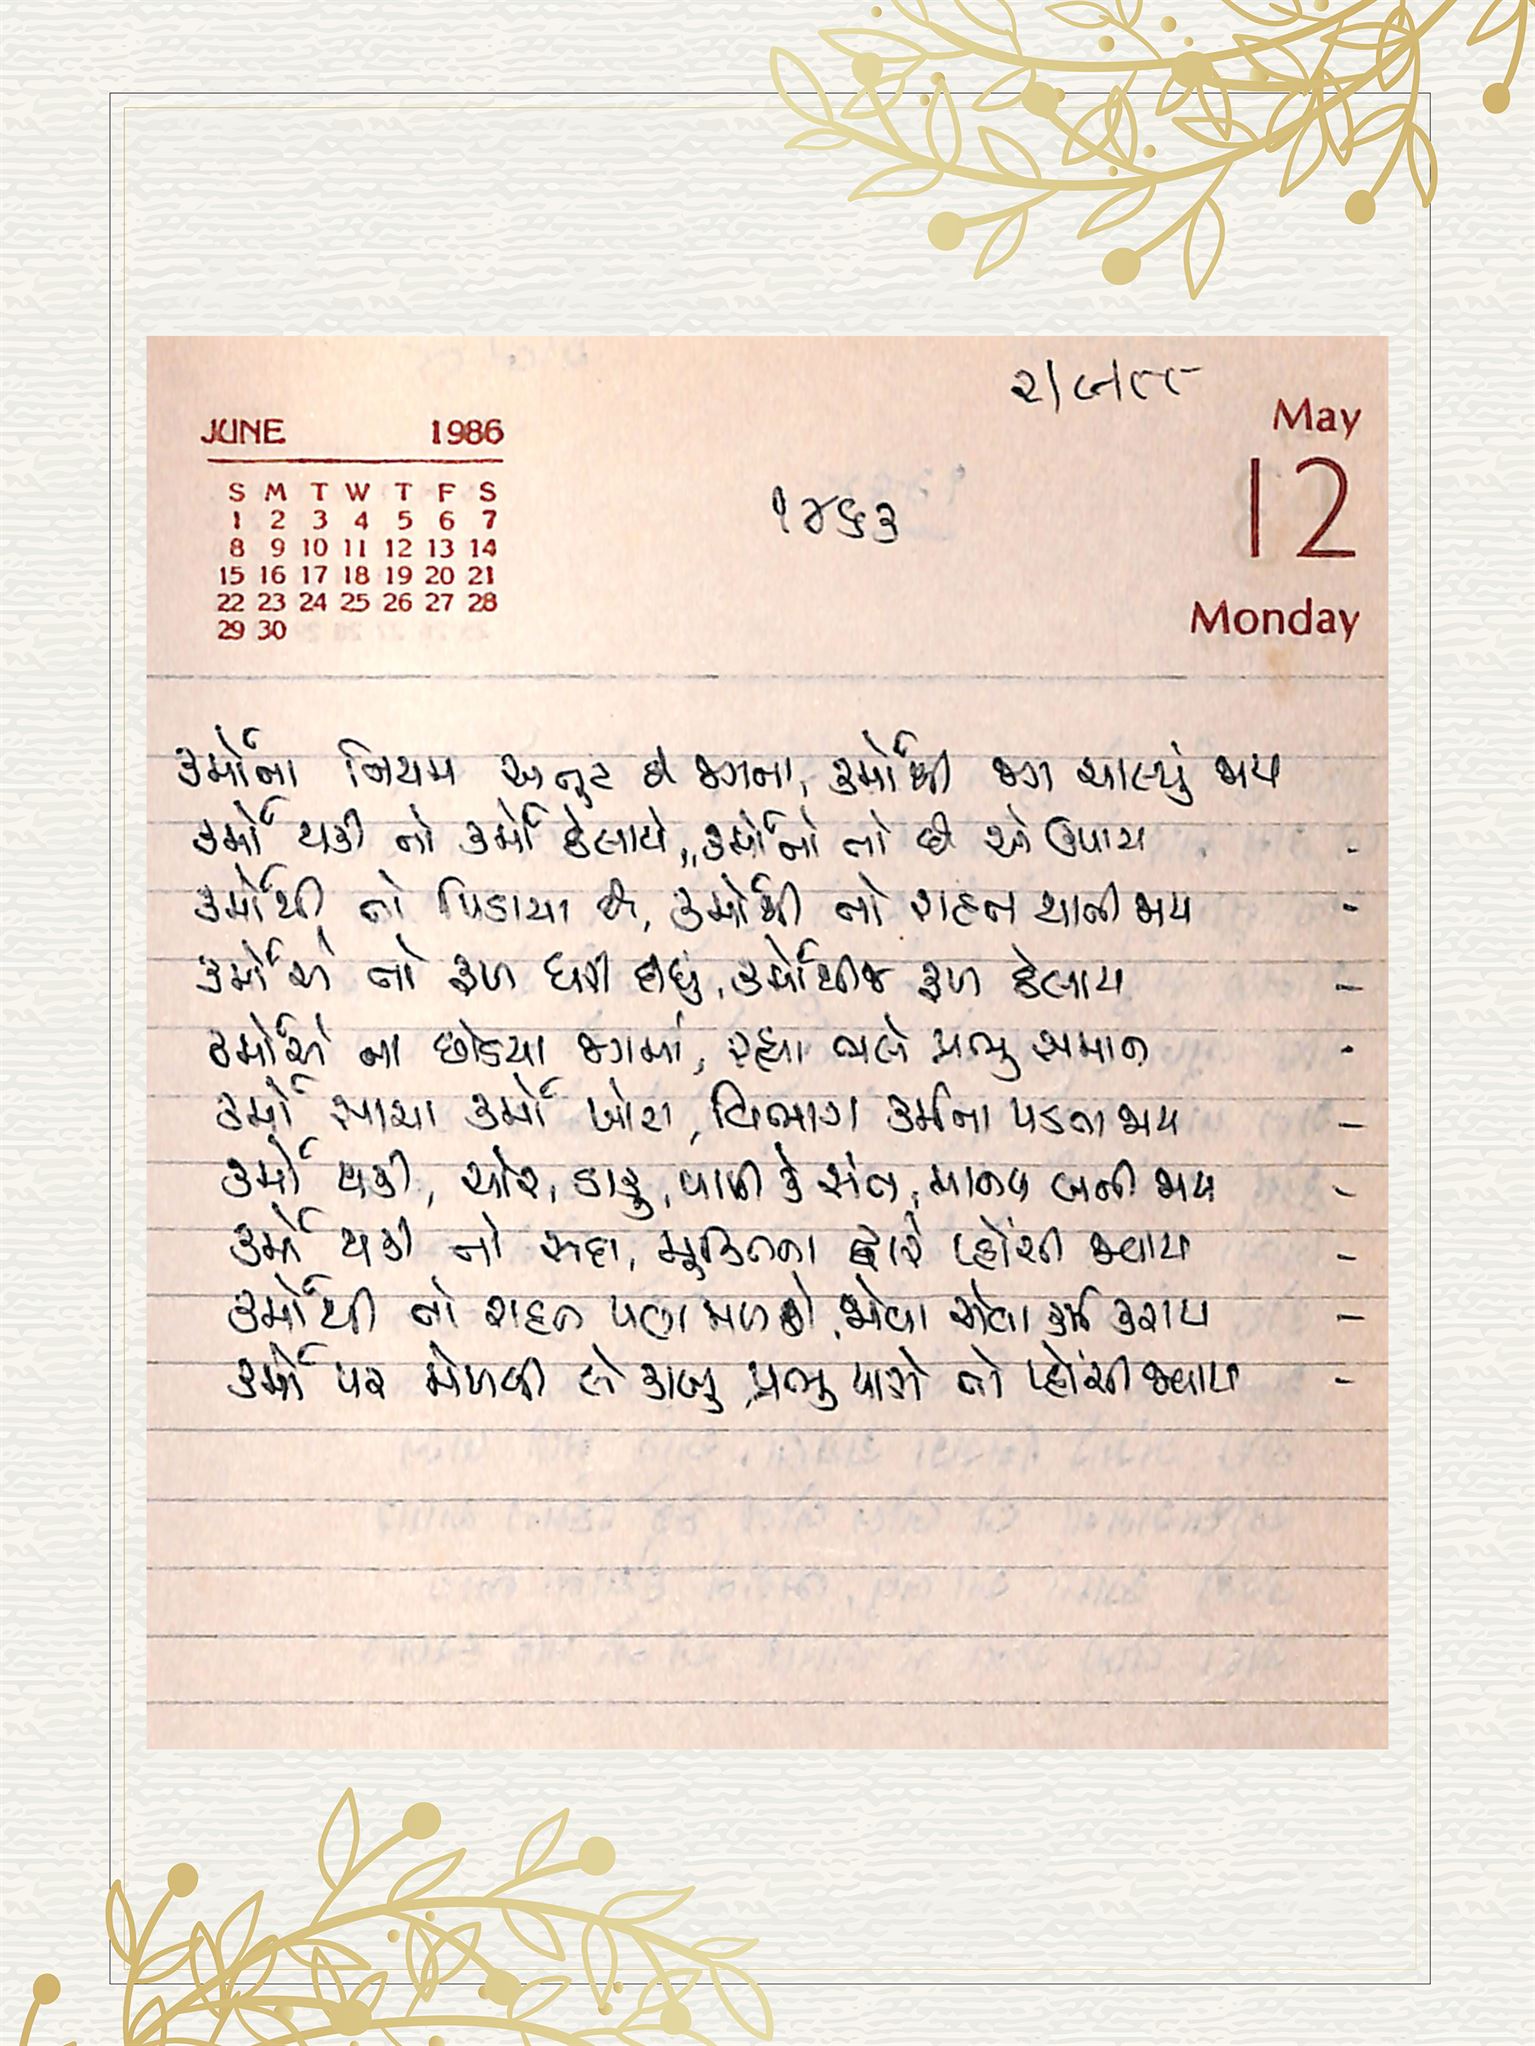 JUNE 1986
S M T W T F S
1 2 3 4 5 6 7
8 9 10 11 12 13 14
15 16 17 18 19 20 21
22 23 24 25 26 27 28
29 30
૧૪૬૩
May
12
Monday
કર્મોના નિયમ અતૂટ છે જગના, કર્મોથી જગ ચાલ્યું જાય
કર્મો થકી તો કર્મો ઠેલાયે, કર્મોનો તો છે એ ઉપાય
કર્મોથી તો પિડાયા છે, કર્મોથી તો રાહત થાતી જાય -
કર્મોએ તો રૂળ ધરી દીધું, કર્મોથીજ રૂળ ઠેલાય -
કર્મોએ ના છોડયા જગમાં, રહ્યા ભલે પ્રભુ સમાન -
કર્મો સાચા કર્મો ખોટા, વિભાગ કર્મના પડતા જાય -
કર્મો થકી, ચોર, ડાકુ, પાપી કે સંત, માનવ બની જાય -
કર્મો થકી તો સદા, મુક્તિના દ્વારે પ્હોંચી જવાય -
કર્મોથી તો રાહત પણ મળશે, જેવા એવા કર્મ કરાય -
કર્મો પર મેળવી લે કાબુ, પ્રભુ પાસે તો પ્હોંચી જવાય -